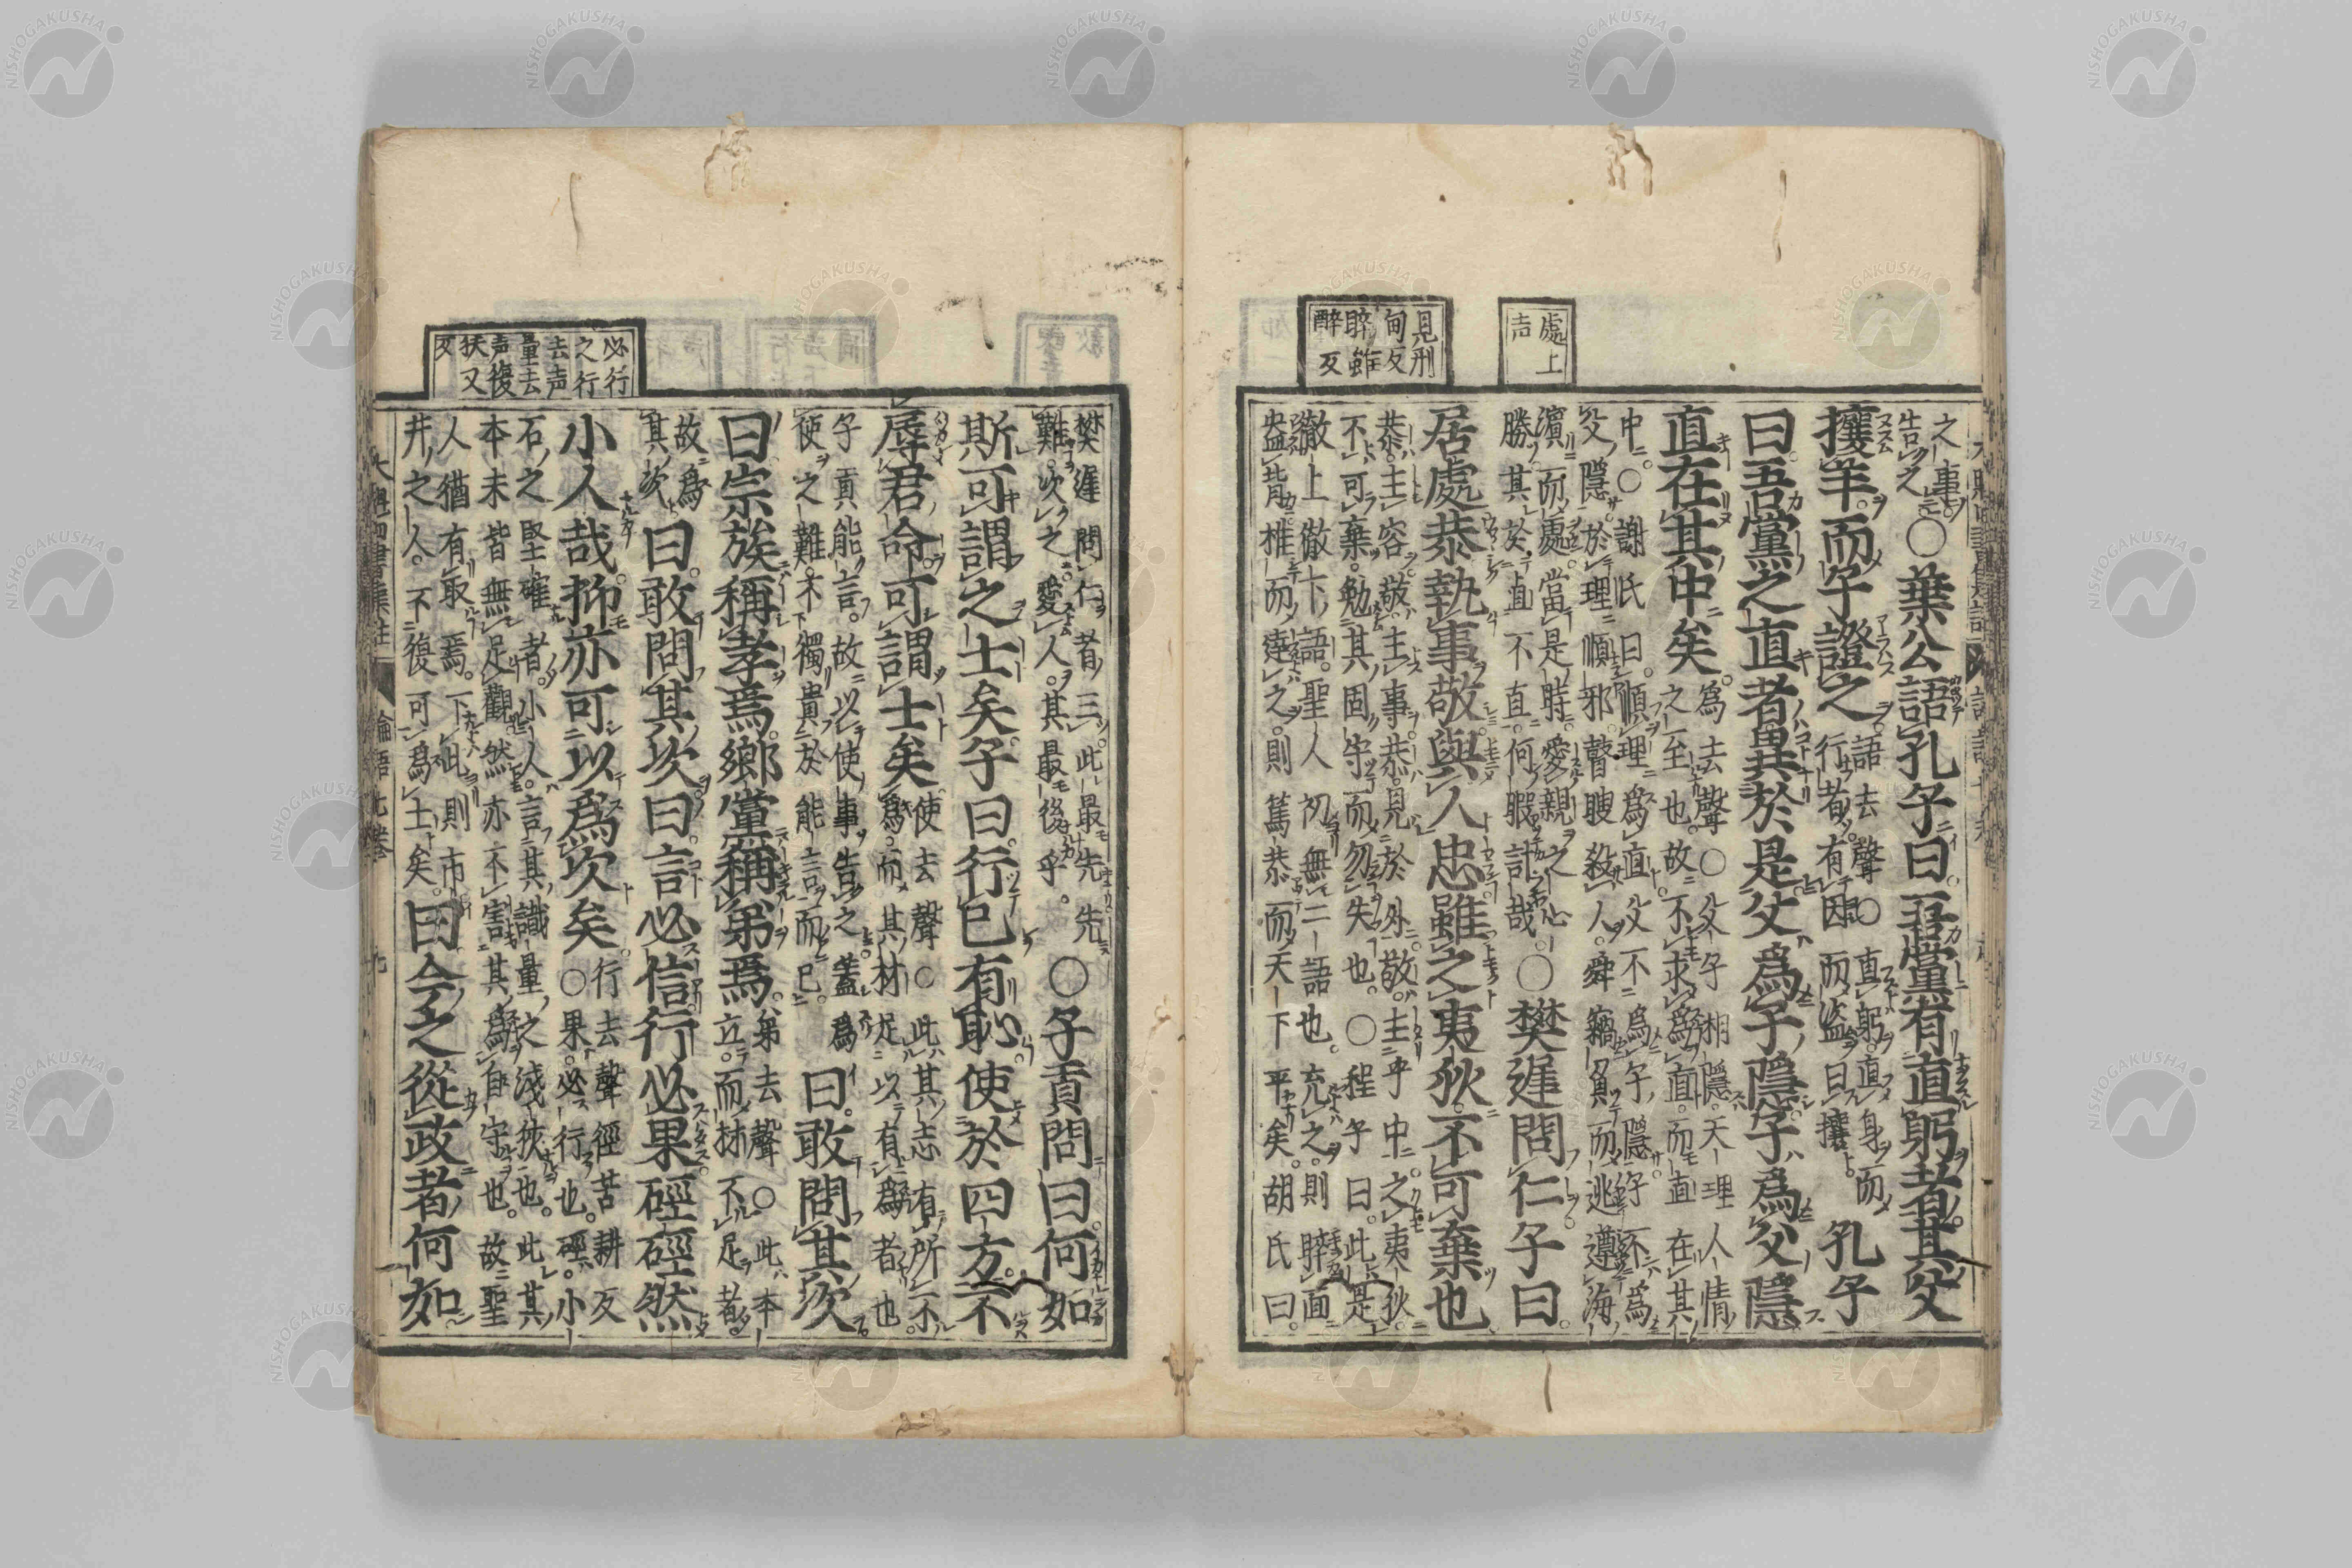 處上
声
見刑
甸反
睟雖
醉反
之事
告之
○葉公語孔子曰吾黨有直躬者其父
攘羊而子證之
語去聲○直躬直身而
行者有因而盗曰攘
孔子
曰吾黨之直者異於是父爲子隱子爲父隱
直在其中矣
爲去聲○父子相隱天理人情
之至也故不求爲直而直在其
中○謝氏曰順理爲直父不爲子隱子不爲
父隱於理順邪瞽瞍殺人舜竊負而逃遵海
濱而處當是時愛親之心
勝其於直不直何暇計哉
○樊遲問仁子曰
居處恭執事敬與人忠雖之夷狄不可棄也
恭主容敬主事恭見於外敬主乎中之夷狄
不可棄勉其固守而勿失也○程子曰此是
徹上徹下語聖人初無二語也充之則睟面
盎背推而達之則篤恭而天下平矣胡氏曰
必行
之行
去声
量去
声復
扶又
反
樊遲問仁者三此最先先
難次之愛人其最後乎
○子貢問曰何如
斯可謂之士矣子曰行已有恥使於四方不
辱君命可謂士矣
使去聲○此其志有所不
爲而其材足以有爲者也
子貢能言故以使事告之蓋爲
使之難不獨貴於能言而已
曰敢問其次
曰宗族稱孝焉鄉黨稱弟焉
弟去聲○此本
立而材不足者
故爲
其次
曰敢問其次曰言必信行必果硜硜然
小人哉抑亦可以爲次矣
行去聲硜苦耕反
○果必行也硜小
石之堅確者小人言其識量之淺狹也此其
本末皆無足觀然亦不害其爲自守也故聖
人猶有取焉下此則市
井之人不復可爲士矣
曰今之從政者何如
論語七卷 九